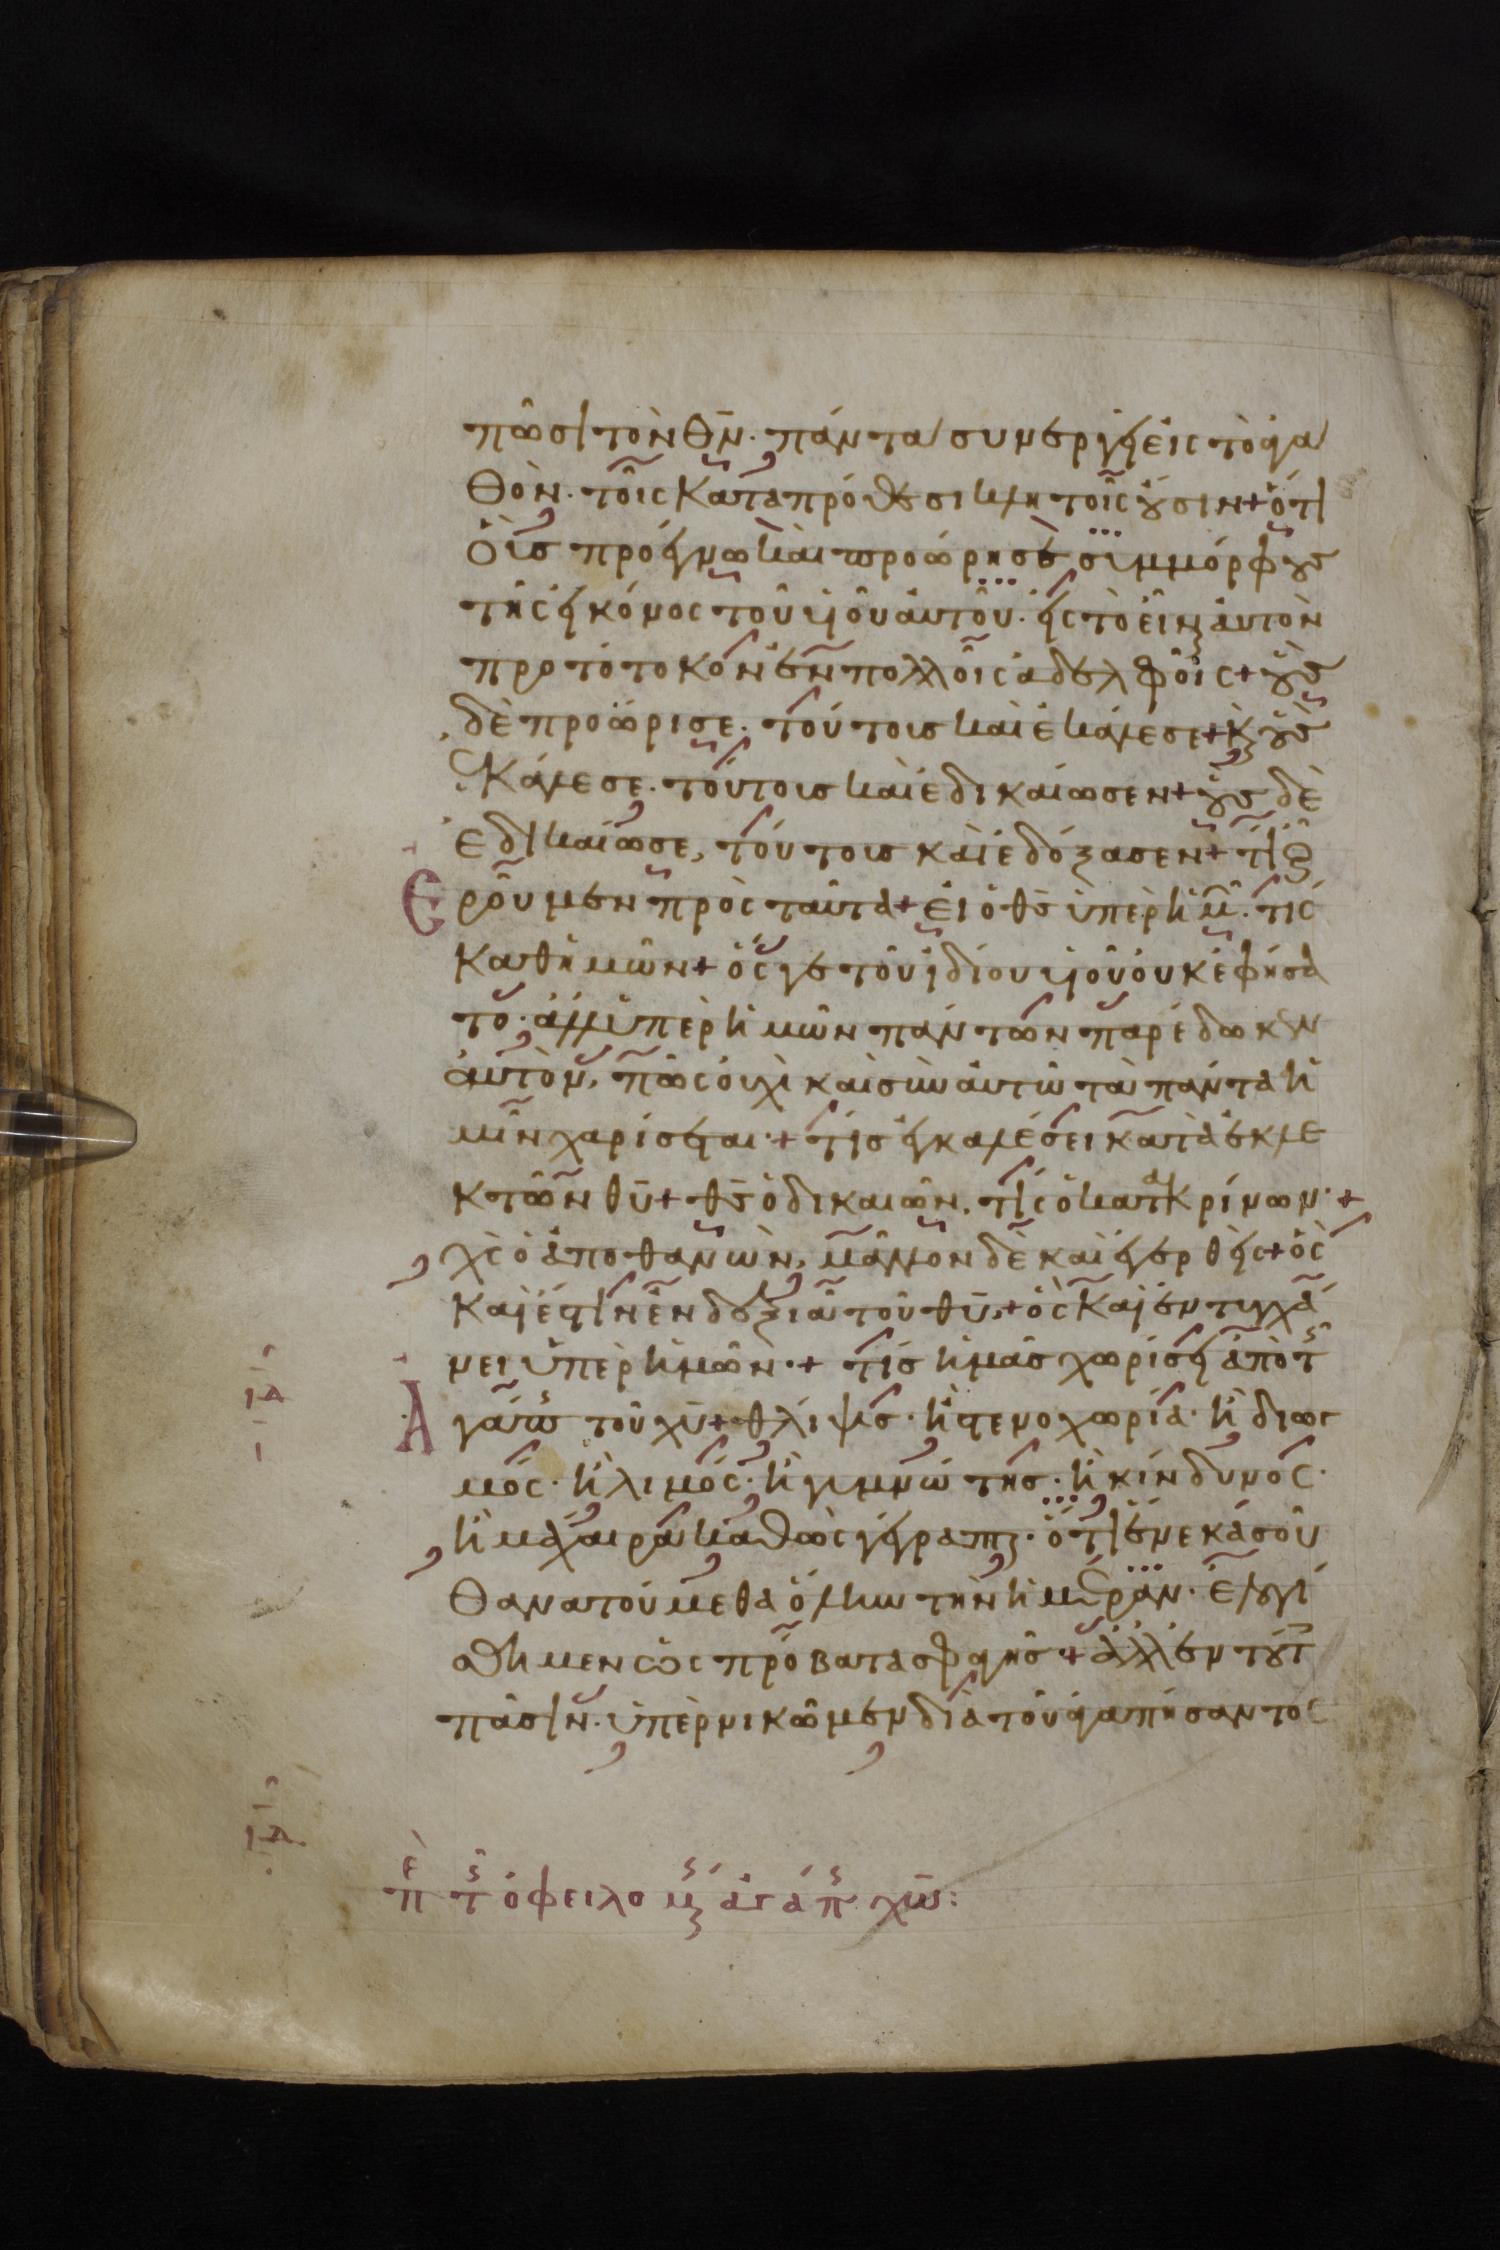 πῶσι τὸν θν· πάντα συνεργεῖ εἰς τὸ ἀγα
θὸν· τοῖς κατα πρόθεσι κλητοῖς οὖσιν + ὅτι
οἷς προέγνω καὶ προώρησε σιμμόρφους
τῆς εἰκόνος τοῦ υἱοῦ αυτοῦ· εἰς τὸ εἶναι ἀυτὸν
προτότοκον ἐν πολλοῖς ἀδελφοῖς + οὓς
δὲ προώρισε· τούτοις καὶ ἐκάλεσε + κ οὓς
ἐκάλεσε· τούτοις καὶ ἐδικαίωσεν + οὓς δὲ
ἐδικαίωσε, τούτοις καὶ ἐδόξασεν + τί οὖ
ἐροῦμεν πρὸς ταῦτα + εἰ ὁ θς ὑπὲρ ἡμ· τίς
καθημῶν + ὅς γε τοῦ ἰδίου υἱοῦ ὀυκ ἐφήσα
το· ἀλλ ὑπὲρ ἡμῶν πάντων παρέδωκεν
ἀυτὸν, πῶς ὀυχὶ καὶ σὺν ἀυτῶ τὰ πάντα ἡ
μῖν χαρίσεται· + τίς ἐγκαλέσει κατὰ ἐκλε
κτῶν θυ + θς ὁ δικαιῶν. τίς ὁ κατακρίνων· +
χς ὁ ἀποθανὼν, μᾶλλον δὲ καὶ ἐγερθεὶς + ὃς
καὶ ἔστιν ἐν δεξιᾶ τοῦ θυ, + ὃς καὶ ἐντυγχά
νει ὑπὲρ ἡμῶν· + τίς ἡμᾶς χωρίσει ἀπὸ τ
ἀγάπης τοῦ χυ + θλίψις· ἢ στενοχωρία· ἢ διωγ
μός· ἢ λιμός· ἢ γυμνώτης· ἢ κίνδυνος·
ἢ μάχαιρα καθὼς γέγραπται· ὅτι ἕνεκά σοῦ
θανατούμεθα ὅλην τὴν ἡμέραν· ἐλογί
σθημεν ὡς πρόβατα σφαγῆς + ἀλλ ἐν τούτ
πᾶσιν· ὑπὲρνικῶμεν διὰ τοῦ ἀγαπήσαντος